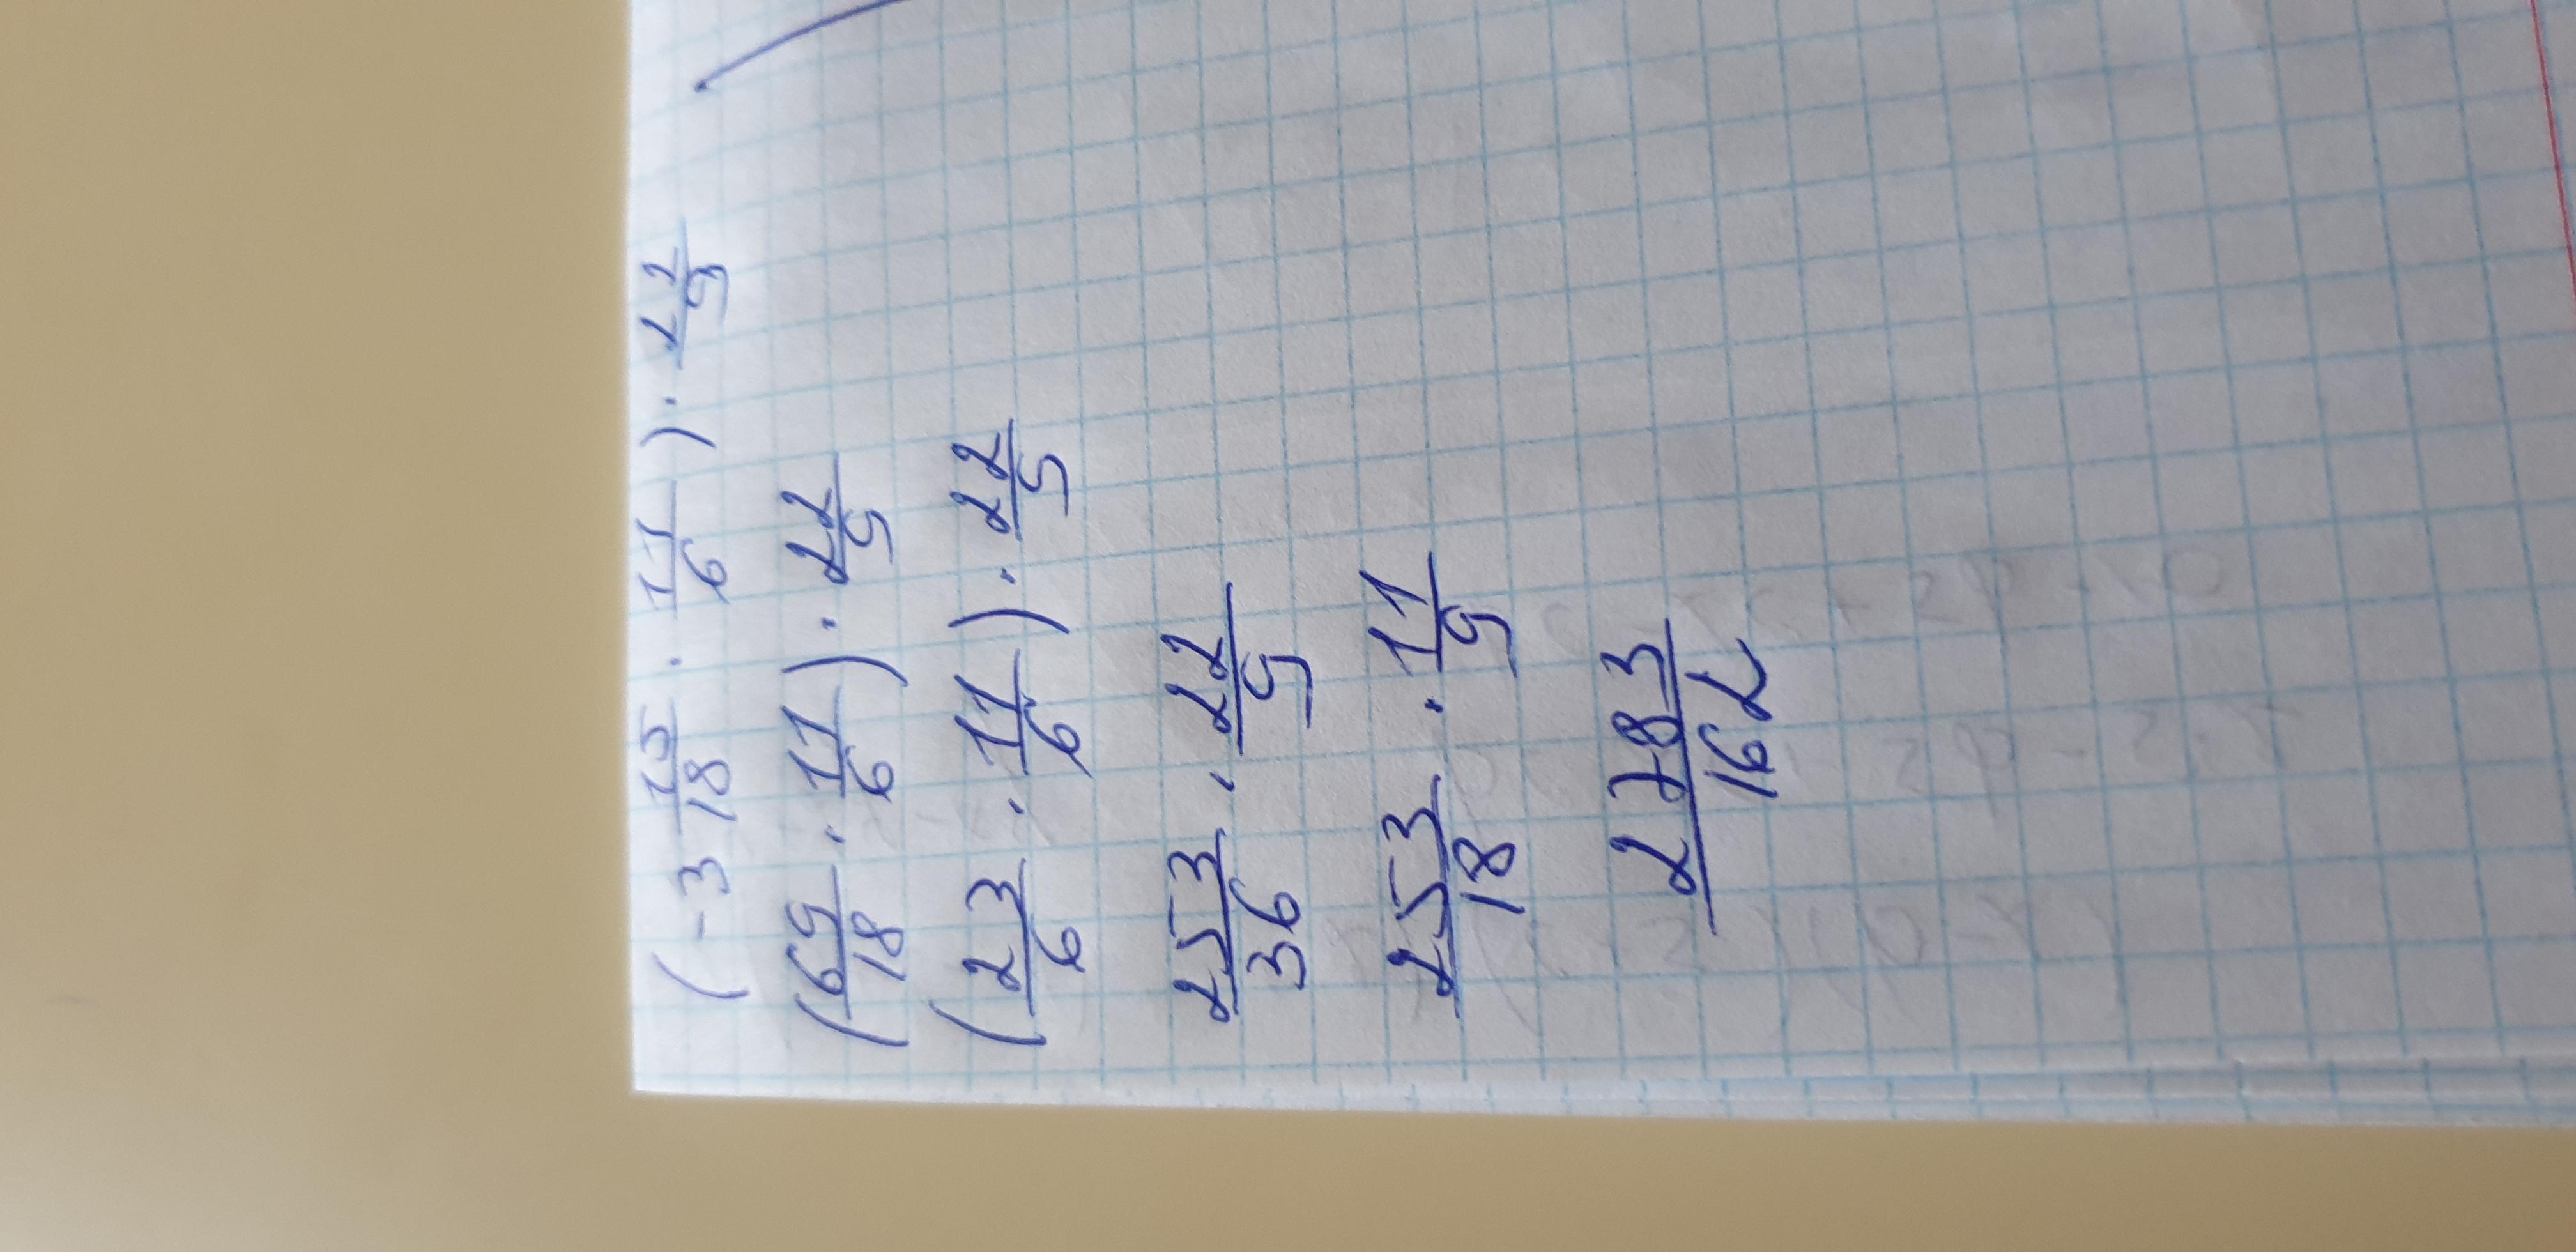 (-3 15/18 · 11/6) · 22/9
(69/18 · 11/6) · 22/9
(23/6 · 11/6) · 22/9
253/36 · 22/9
253/18 · 11/9
2783/162